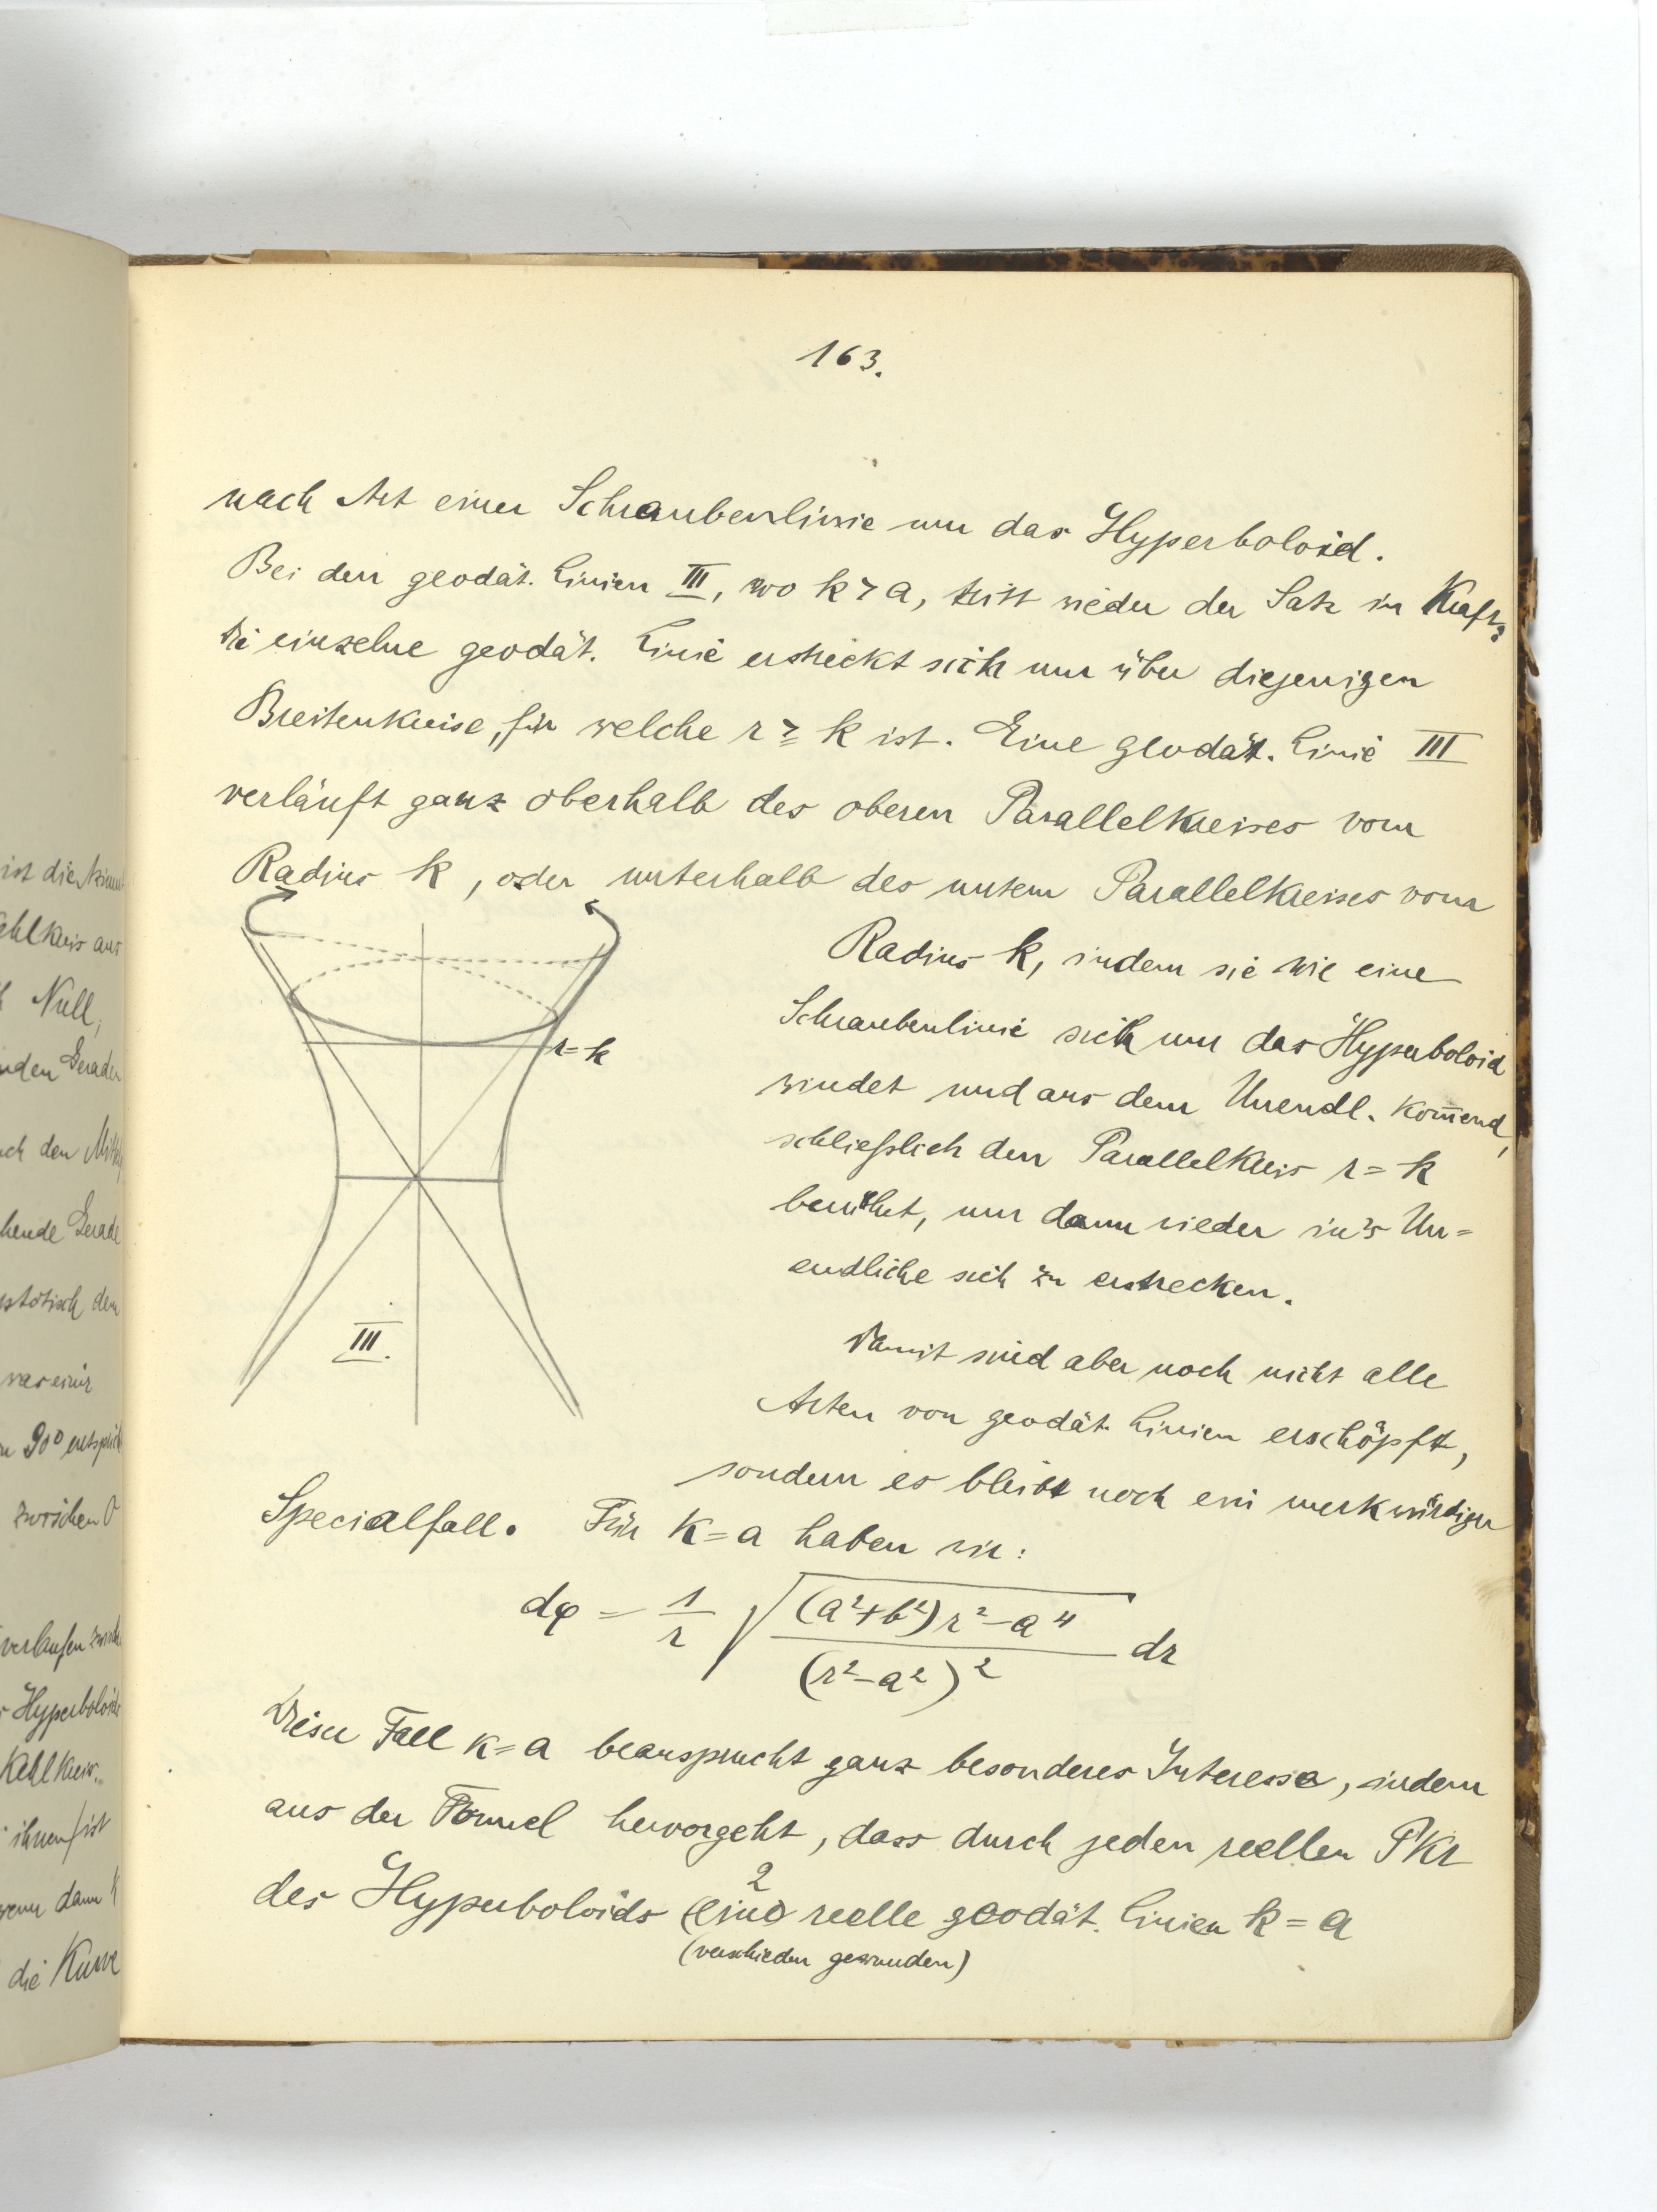 163.
nach Art einer Schraubenlinie um das Hyperboloid.
Bei den geodät. Linien III, wo k > a, tritt wieder der Satz in Kraft,
die einzelne geodät. Linie erstreckt sich nur über diejenigen
Breitenkreise, für welche r ≧ k ist. Eine geodät. Linie III
verläuft ganz oberhalb des oberen Parallelkreises vom
Radius k, oder unterhalb des untern Parallelkreises vom
Radius k, indem sie wie eine
Schraubenlinie sich um das Hyperboloid
windet und aus dem Unendl. kom̄end,
schließlich den Parallelkreis r = k
berührt, um dann wieder in's Un=
endliche sich zu erstrecken.
r = k
III.
Damit sind aber noch nicht alle
Arten von geodät. Linien erschöpft,
sondern es bleibt noch ein merkwürdiger
Specialfall. Für k = a haben wir:
dφ = 1/r √((a²+b²)r² – a⁴ / (r² – a²)²) dr
Dieser Fall k = a beansprucht ganz besonderes Interesse, indem
aus der Formel hervorgeht, dass durch jeden reellen PKr
2
des Hyperboloids (eine) reelle geodät. Linien k = a
(verschieden gewunden)
ist die
ehlkreis aus
Null,
nden Geraden
ch den
hende Gerade
ptotisch dem
was einer
90°
zwischen 0
verlaufen
Hyperboloids
Kehlkreis.
ihnen ist
wenn dann k
die Kurve